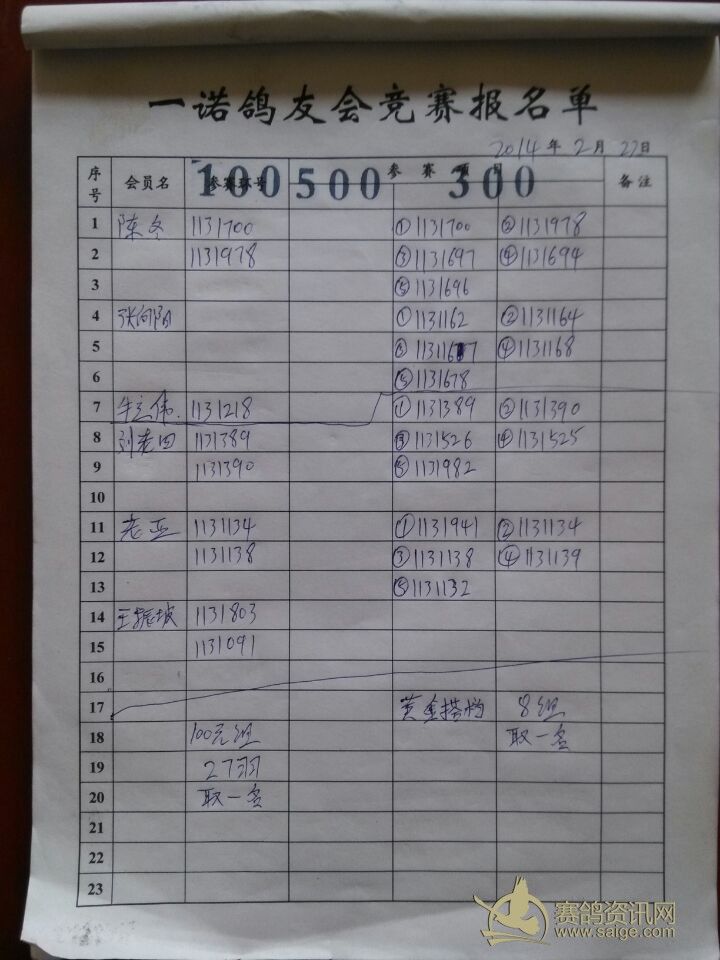 一诺鸽友会竞赛报名单
2014年2月27日
序号 会员名 参赛环号 参赛项目 备注
100 500 300
1 陈冬 1131700 ①1131700 ②1131978
2 1131978 ③1131697 ④1131694
3 ⑤1131696
4 张向阳 ①1131162 ②1131164
5 ③ ④1131168
6 ⑤1131678
7 牛立伟. 1131218 ①1131389 ②1131390
8 刘老四 1131389 ③1131526 ④1131525
9 1131390 ⑤1131982
10
11 老亚 1131134 ①1131941 ②1131134
12 1131138 ③1131138 ④1131139
13 ⑤1131132
14 王振坡 1131803
15 1131091
16
17 黄金搭档 8组
18 100元组 取一名
19 27羽
20 取一名
21
22
23
赛鸽资讯网
www.saige.com